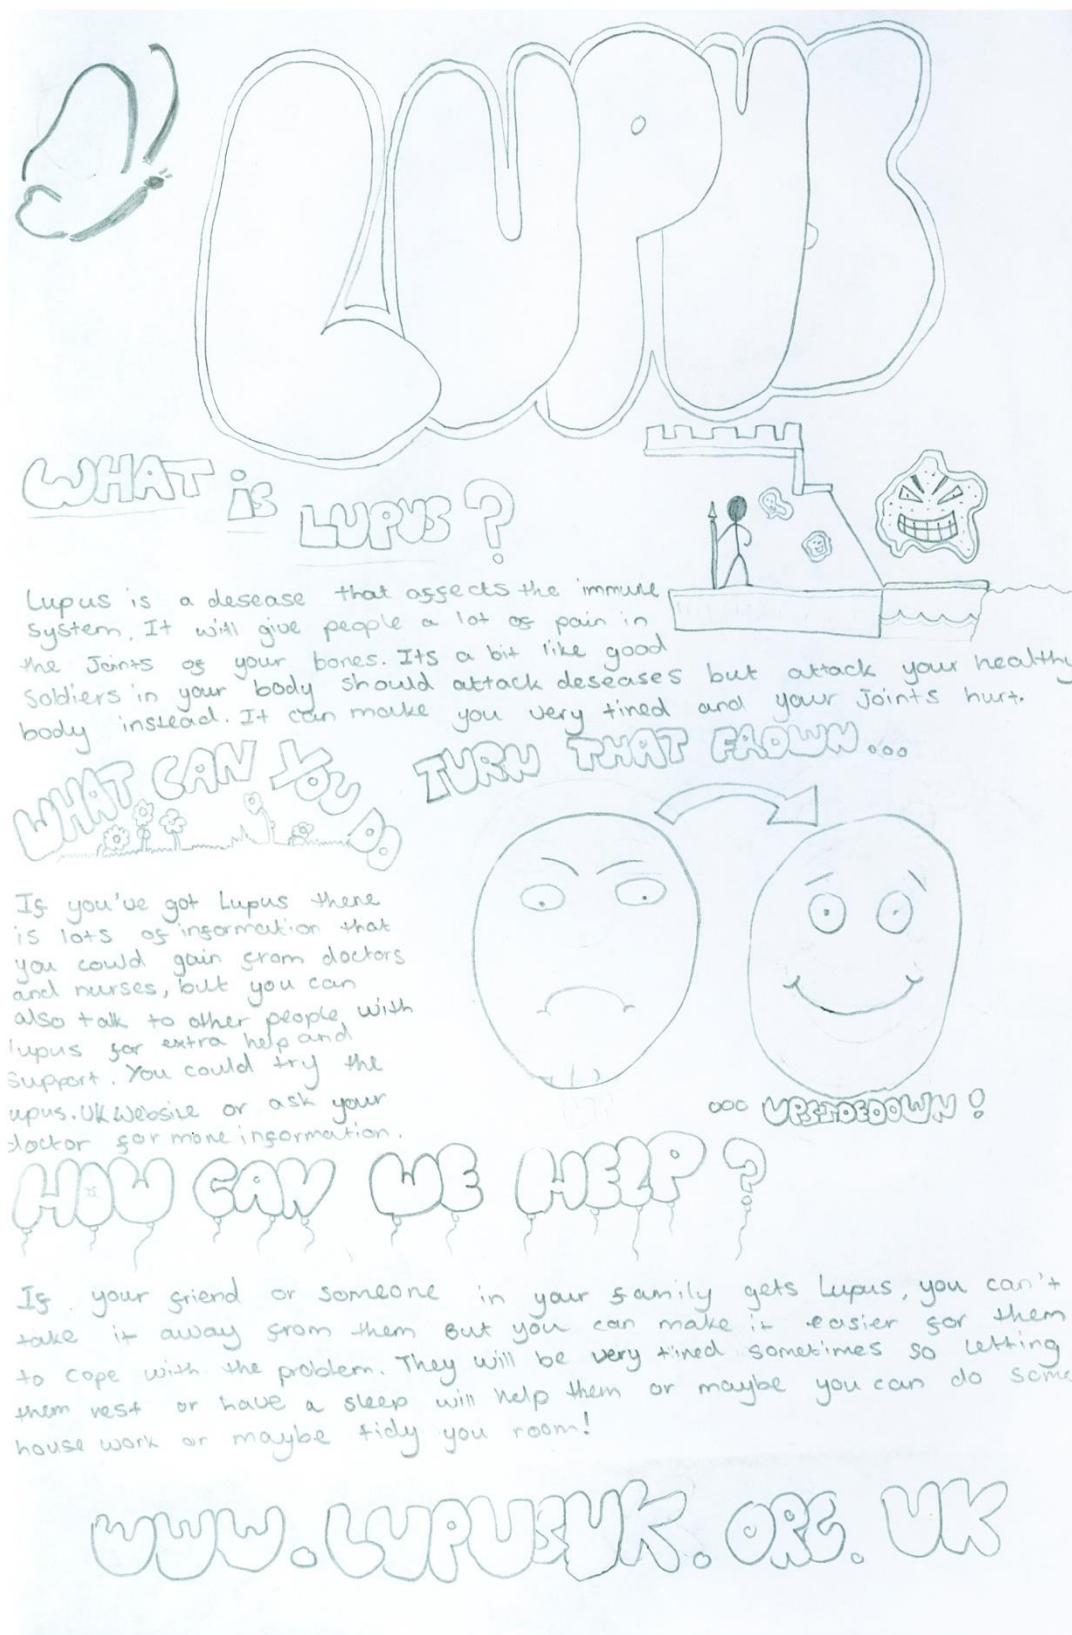 LUPUS
WHAT is LUPUS?
Lupus is a desease that affects the immune
system. It will give people a lot of pain in
the Joints of your bones. Its a bit like good
Soldiers in your body should attack deseases but attack your healthy
body instead. It can make you very tired and your Joints hurt.
WHAT CAN YOU DO
TURN THAT FROWN...
If you've got Lupus there
is lots of information that
you could gain from doctors
and nurses, but you can
also talk to other people with
lupus for extra help and
Support. You could try the
upus.UK Website or ask your
doctor for more information.
... UPSIDEDOWN!
HOW CAN WE HELP?
If your friend or someone in your family gets Lupus, you can't
take it away from them But you can make it easier for them
to cope with the problem. They will be very tired sometimes so letting
them rest or have a sleep will help them or maybe you can do some
house work or maybe tidy you room!
WWW.LUPUSUK.ORG.UK